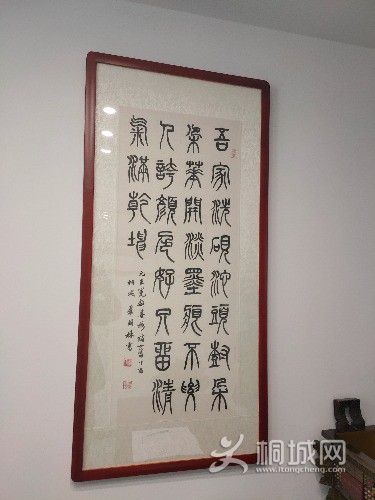 吾家洗硯池頭樹朵
朵華開淡墨痕不要
人誇顏色好只留清
氣滿乾坤
元王冕
桐城
書
桐城网
www.itongcheng.com